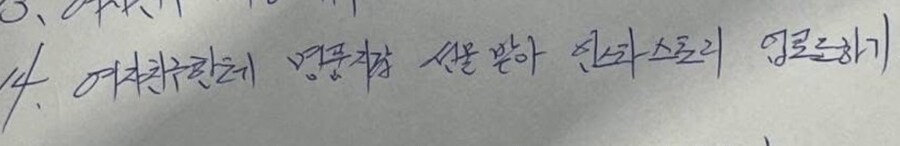 14. 여자친구한테 명품지갑 선물 받아 인스타스토리 업로드하기